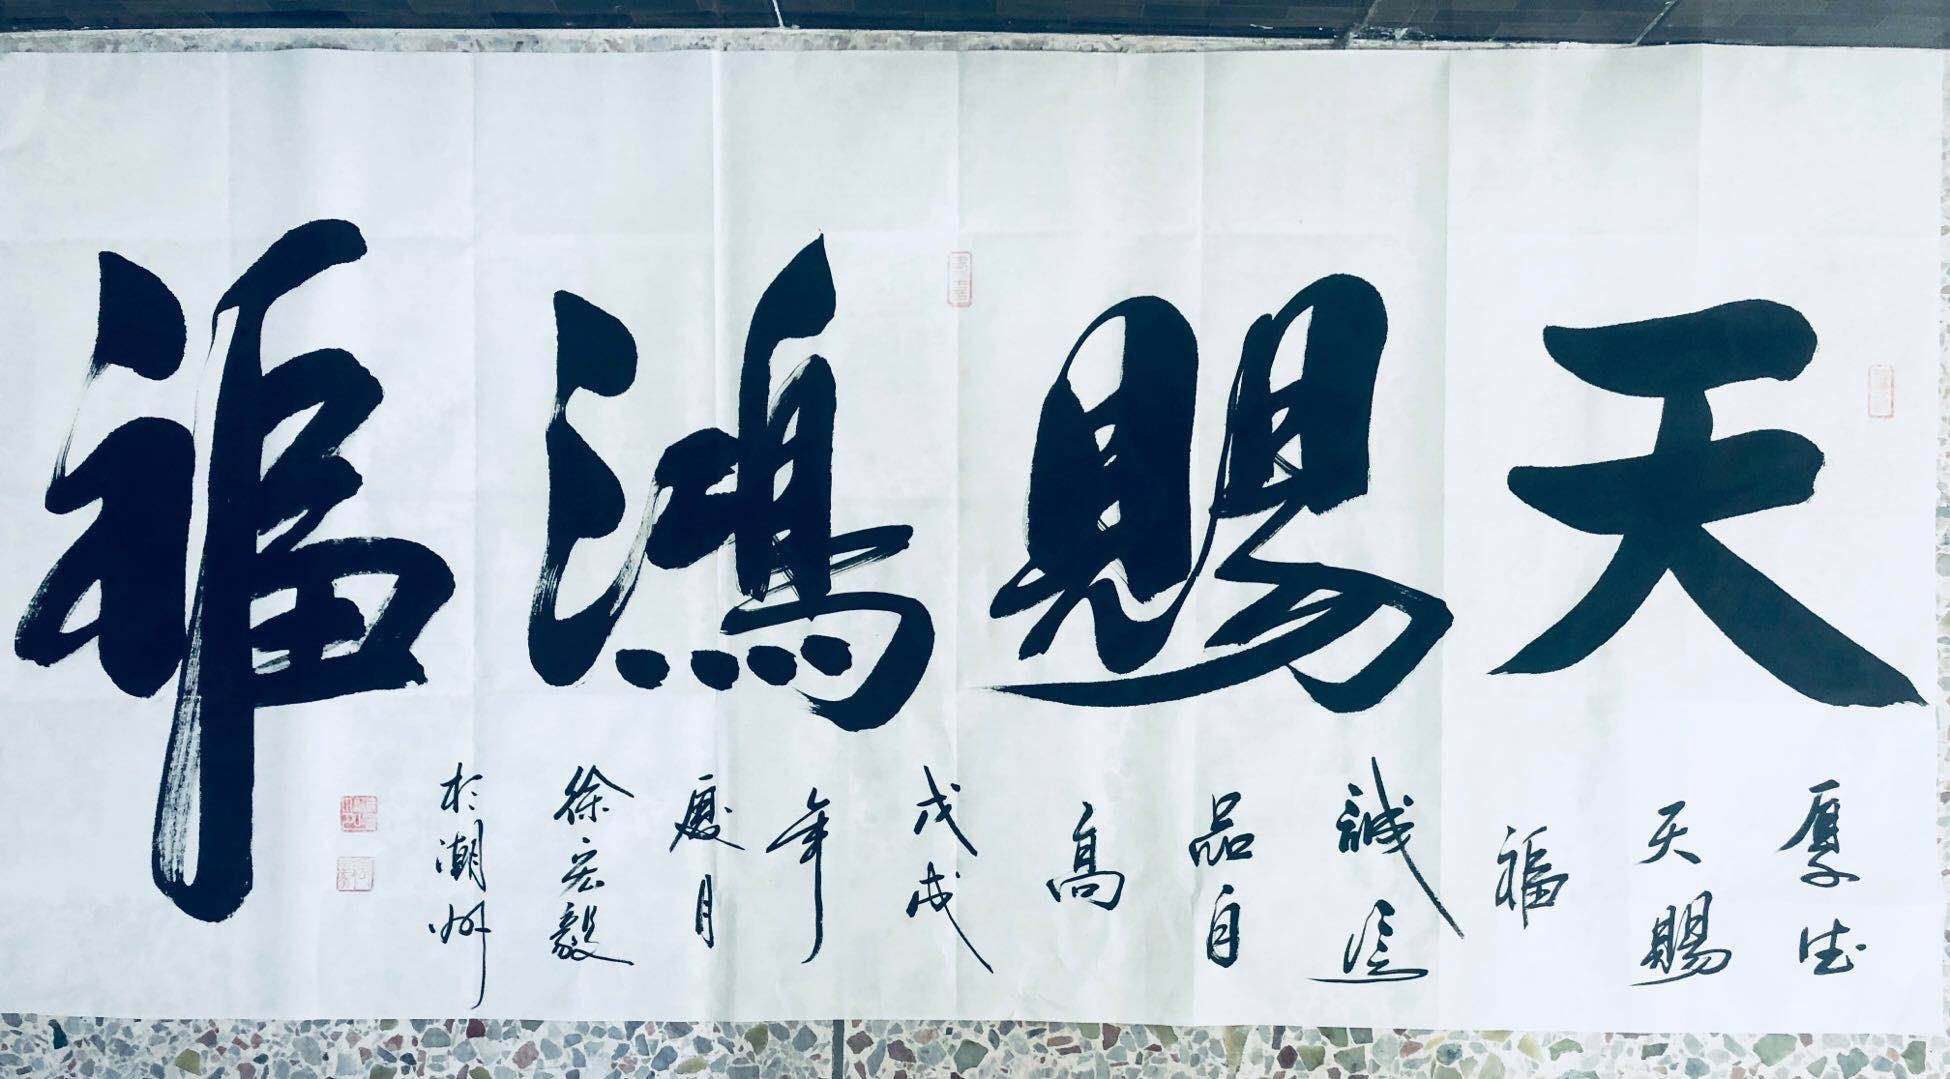 天賜鴻福
厚德
天賜
福
誠信
品自
高
戊戌
年
慶月
徐宏毅
於潮州